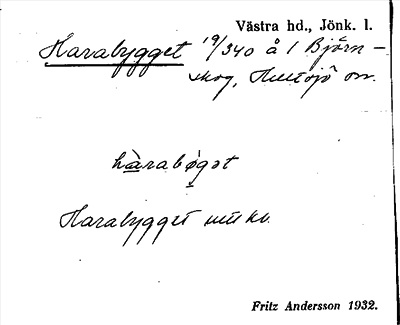 Västra hd., Jönk. l.
Harabygget 19/340 å 1 Björn-
skog, Hultsjö sn.
hàrabǿgət
Harabygget
Fritz Andersson 1932.